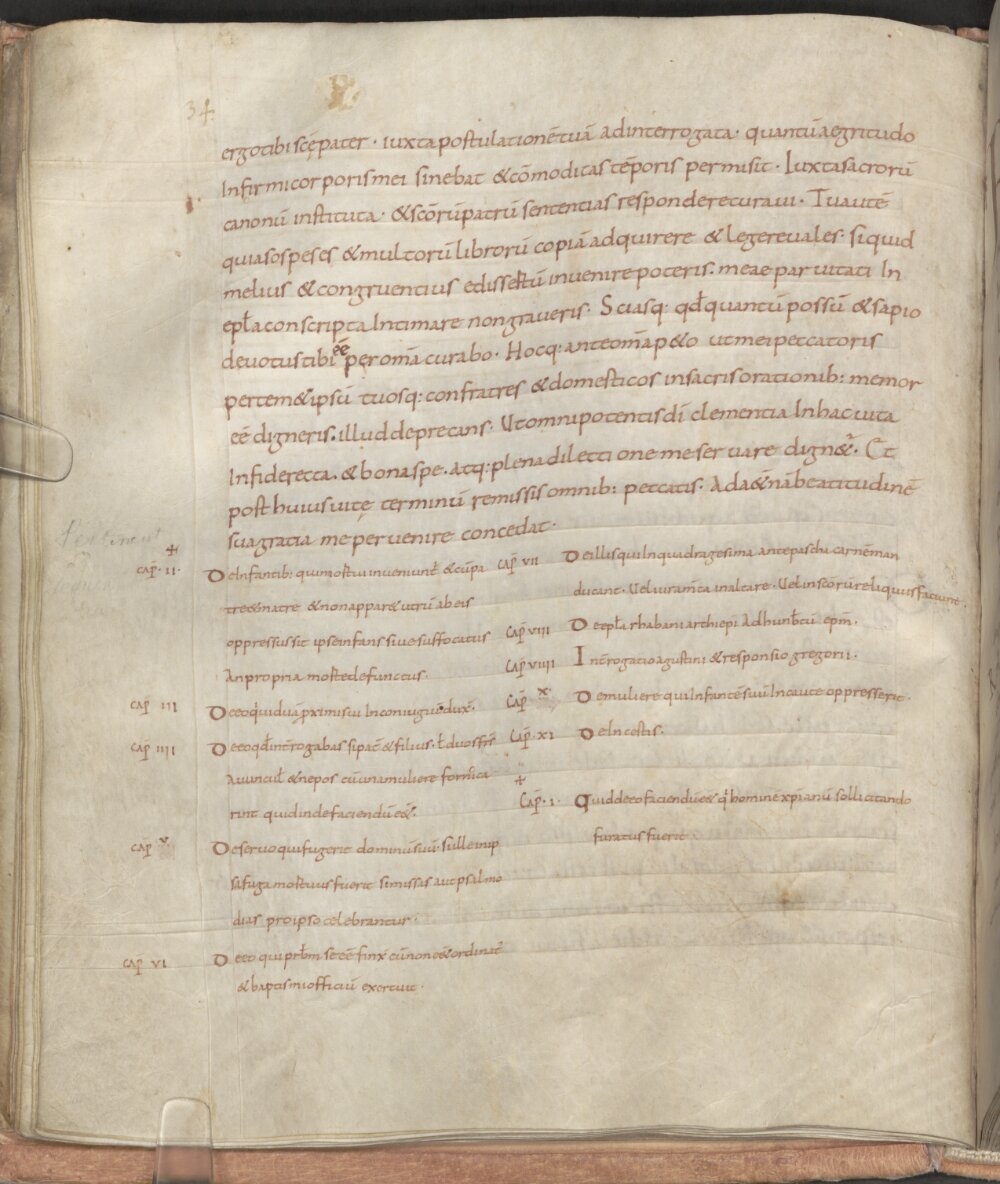 34.
ergo tibi scē pater · iuxta postulationē tuā ad interrogata · quantū aegritudo
Infirmi corporis mei sinebat & cōmoditas tēporis permisit · Iuxta sacrorū
canonū instituta · & scōrū patrū sententias respondere curaui · Tu autē
quia sospes es & multorū librorū copiā adquirere & legere uales · si quid
melius & congruentius edissertū inuenire poteris · meae paruitati In
epła conscripta Intimare non graueris · Sciasq: qđ quantū possū & sapio
deuotus tibi eē per omā curabo · Hocq: ante omā p&o ut mei peccatoris
pertem&ipsū tuosq: confratres & domesticos in sacris orationib: memor
eē digneris · illud deprecans · Ut omnipotentis dī clementia In hac uita
In fide recta · & bona spe · atq: plena dilectione me seruare dign&ur · Et
post huius uitę terminū remissis omnib: peccatis · Ad a&ernā beatitudinē
sua gratia me peruenire concedat ·
+
cap̄ · II · De Infantib: qui mortui inueniunt̄ & cū pa
tre & matre & non appar& utrū ab eis
oppressus sit ipse infans siue suffocatus
An propria morte defunctus ·
cap̄ III De eo qui duā proximi sui In coniugiū dux̄ ·
cap̄ IIII De eo qđ int̄rogabas si pat̄ & filius · ł duo frs̄
Auuncuł & nepos cū una muliere fornica
rint quid inde faciendū e& ·
cap̄ V De seruo qui fugerit dominū suū si lle in ip
sa fuga mortuus fuerit si missis aut psalmo
dias pro ipso celebrantur ·
cap̄ VI De eo qui prb̄m se eē finx̄ cū non e& ordinat̄
& baptismi officiū exercuit ·
cap̄ VII De illis qui In quadragesima ante pascha carnē man
ducant · Uel iuramta in altare · Uel in scōrū reliquiis faciunt ·
cap̄ VIII De epła rhabani archiepi Ad hunb̄tū epm̄ ·
cap̄ VIIII Int̄rogatio agustini & responsio gregorii ·
cap̄ X De muliere qui Infantē suū Incaute oppresserit ·
cap̄ XI De Incestis ·
+
cap̄ · I · Quid de eo faciendū e& qui hominē xpianū sollicitando
furatus fuerit